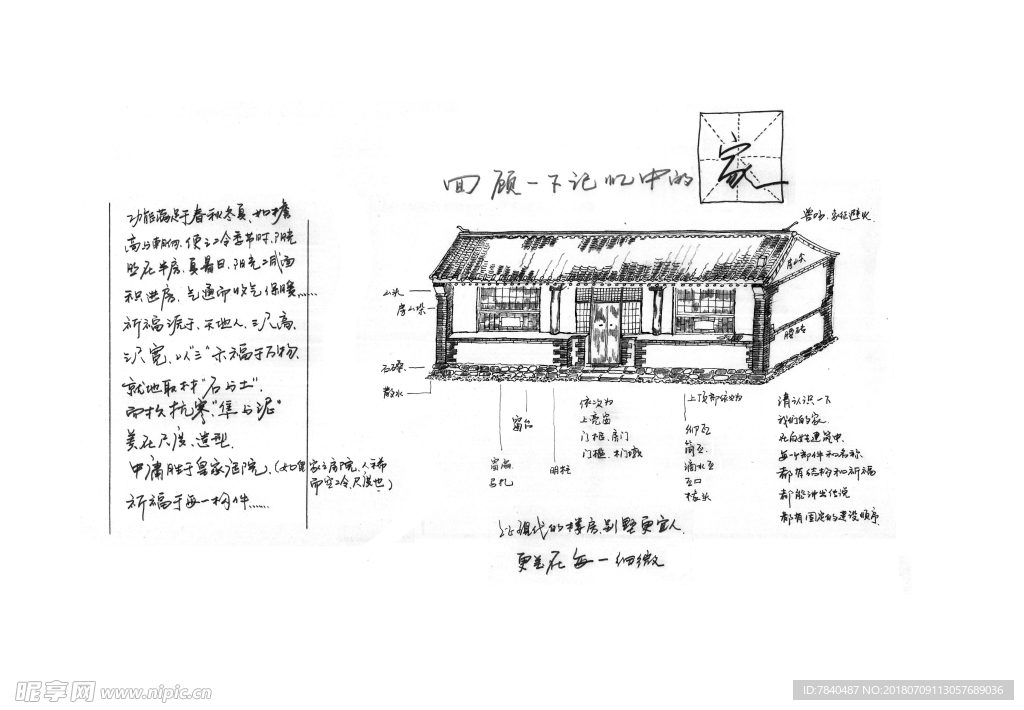 回顾一下记忆中的
家
功能满足于春秋冬夏、如檐
高与朝向、使之冷季节时、阳光
照在半房、夏暑日、阳光
积进房、气通而收气保暖……
祈福源于、天地人、三尺高、
三尺宽、以"三"示福于万物、
就地取材"石与土"、
抗寒"
美在尺度、造型、
中庸胜于皇家庭院、(如
家之房院、人稀
而空冷、尺度也)
祈福于每一构件……
兽吻、
山头
石
散水
腰砖
窗台
窗扇
明柱
依次为
上亮窗
门框、扇门
门槛、木门墩
上顶部依次为
仰瓦
筒瓦
滴水瓦
瓦口
椽头
请认识一下
我们的家
每个部件和名称
都有结构和祈福
都能讲出传说
都有固定的建设顺序
让现代的楼房、别墅更宜人、
更美在每一细微
昵享网 www.nipic.cn
ID:7840487 NO:20180709113057689036